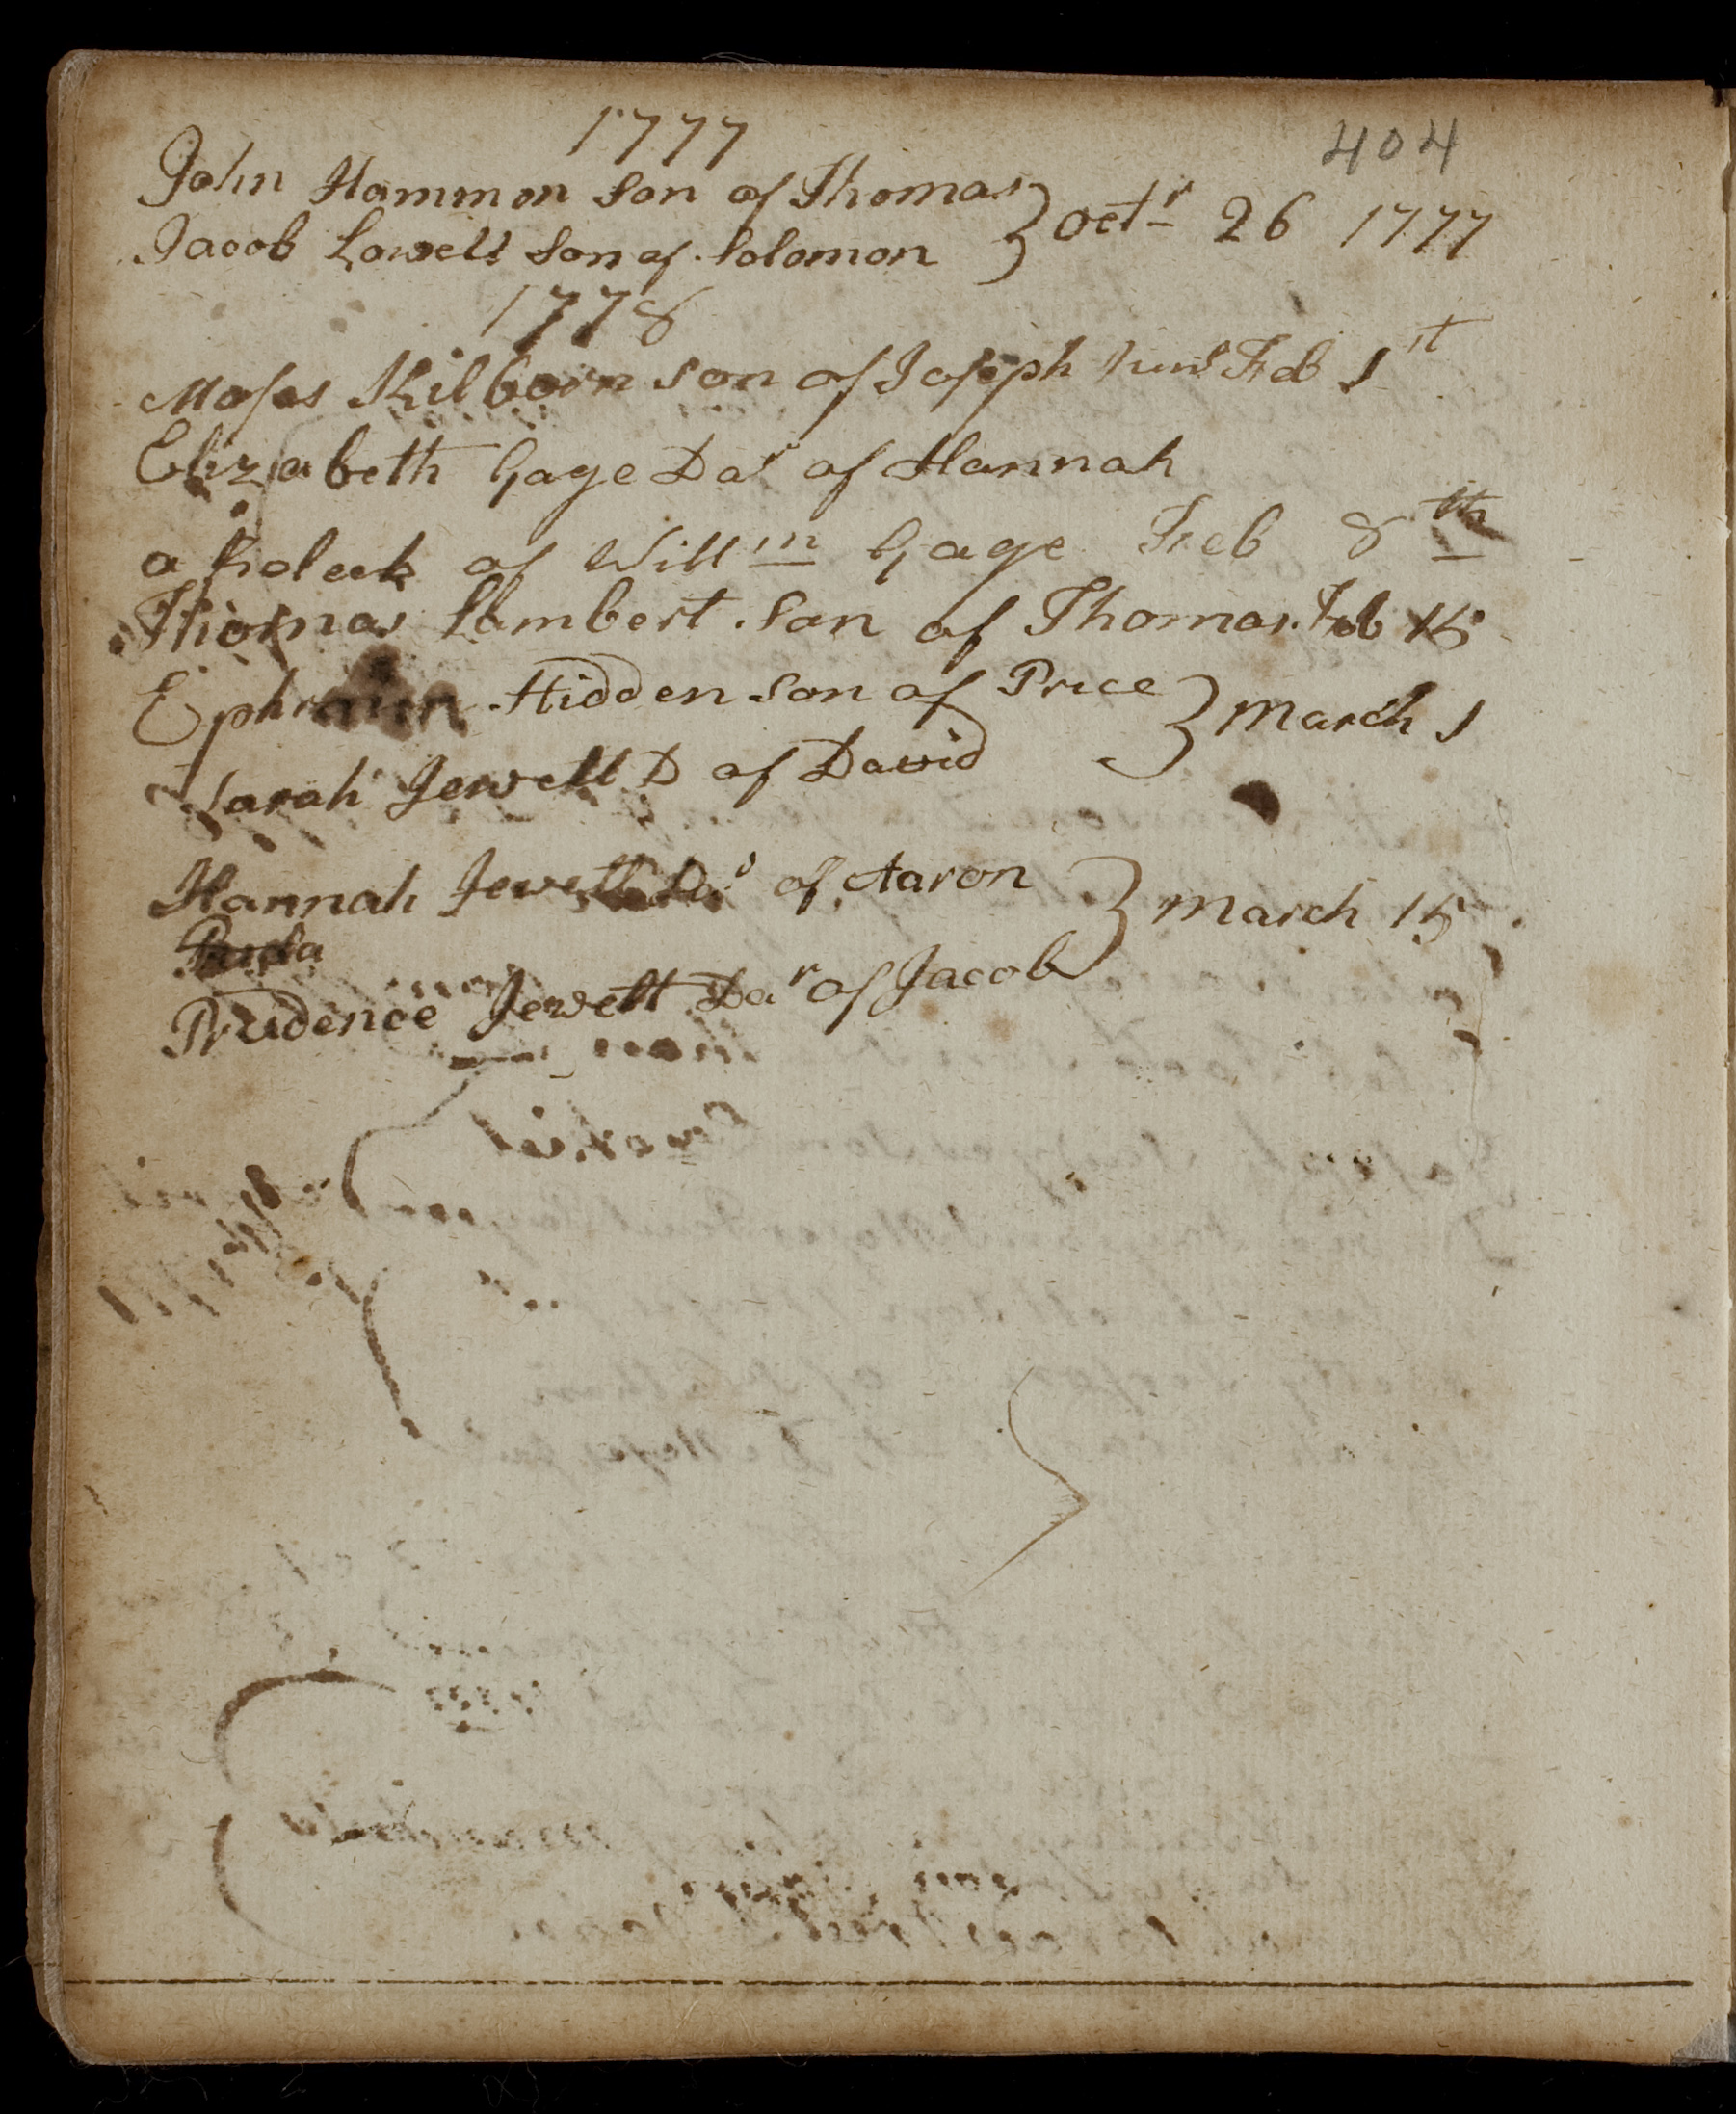 1777
404
John Hammon Son of Thomas
Jacob Lowell Son of Solomon } Octr 26 1777
1778
Moses Kilborn son of Joseph Junr Feb 1st
Elizabeth Gage Dar of Hannah
a Relect of Willm Gage Feb 8th
Thomas Lambert Son of Thomas Feb 15
Ephraim Hidden Son of Price
Sarah Jewett D of David } March 1
Hannah Jewett Dar of Aaron
Pruda
Prudence Jewett Dar of Jacob } March 15